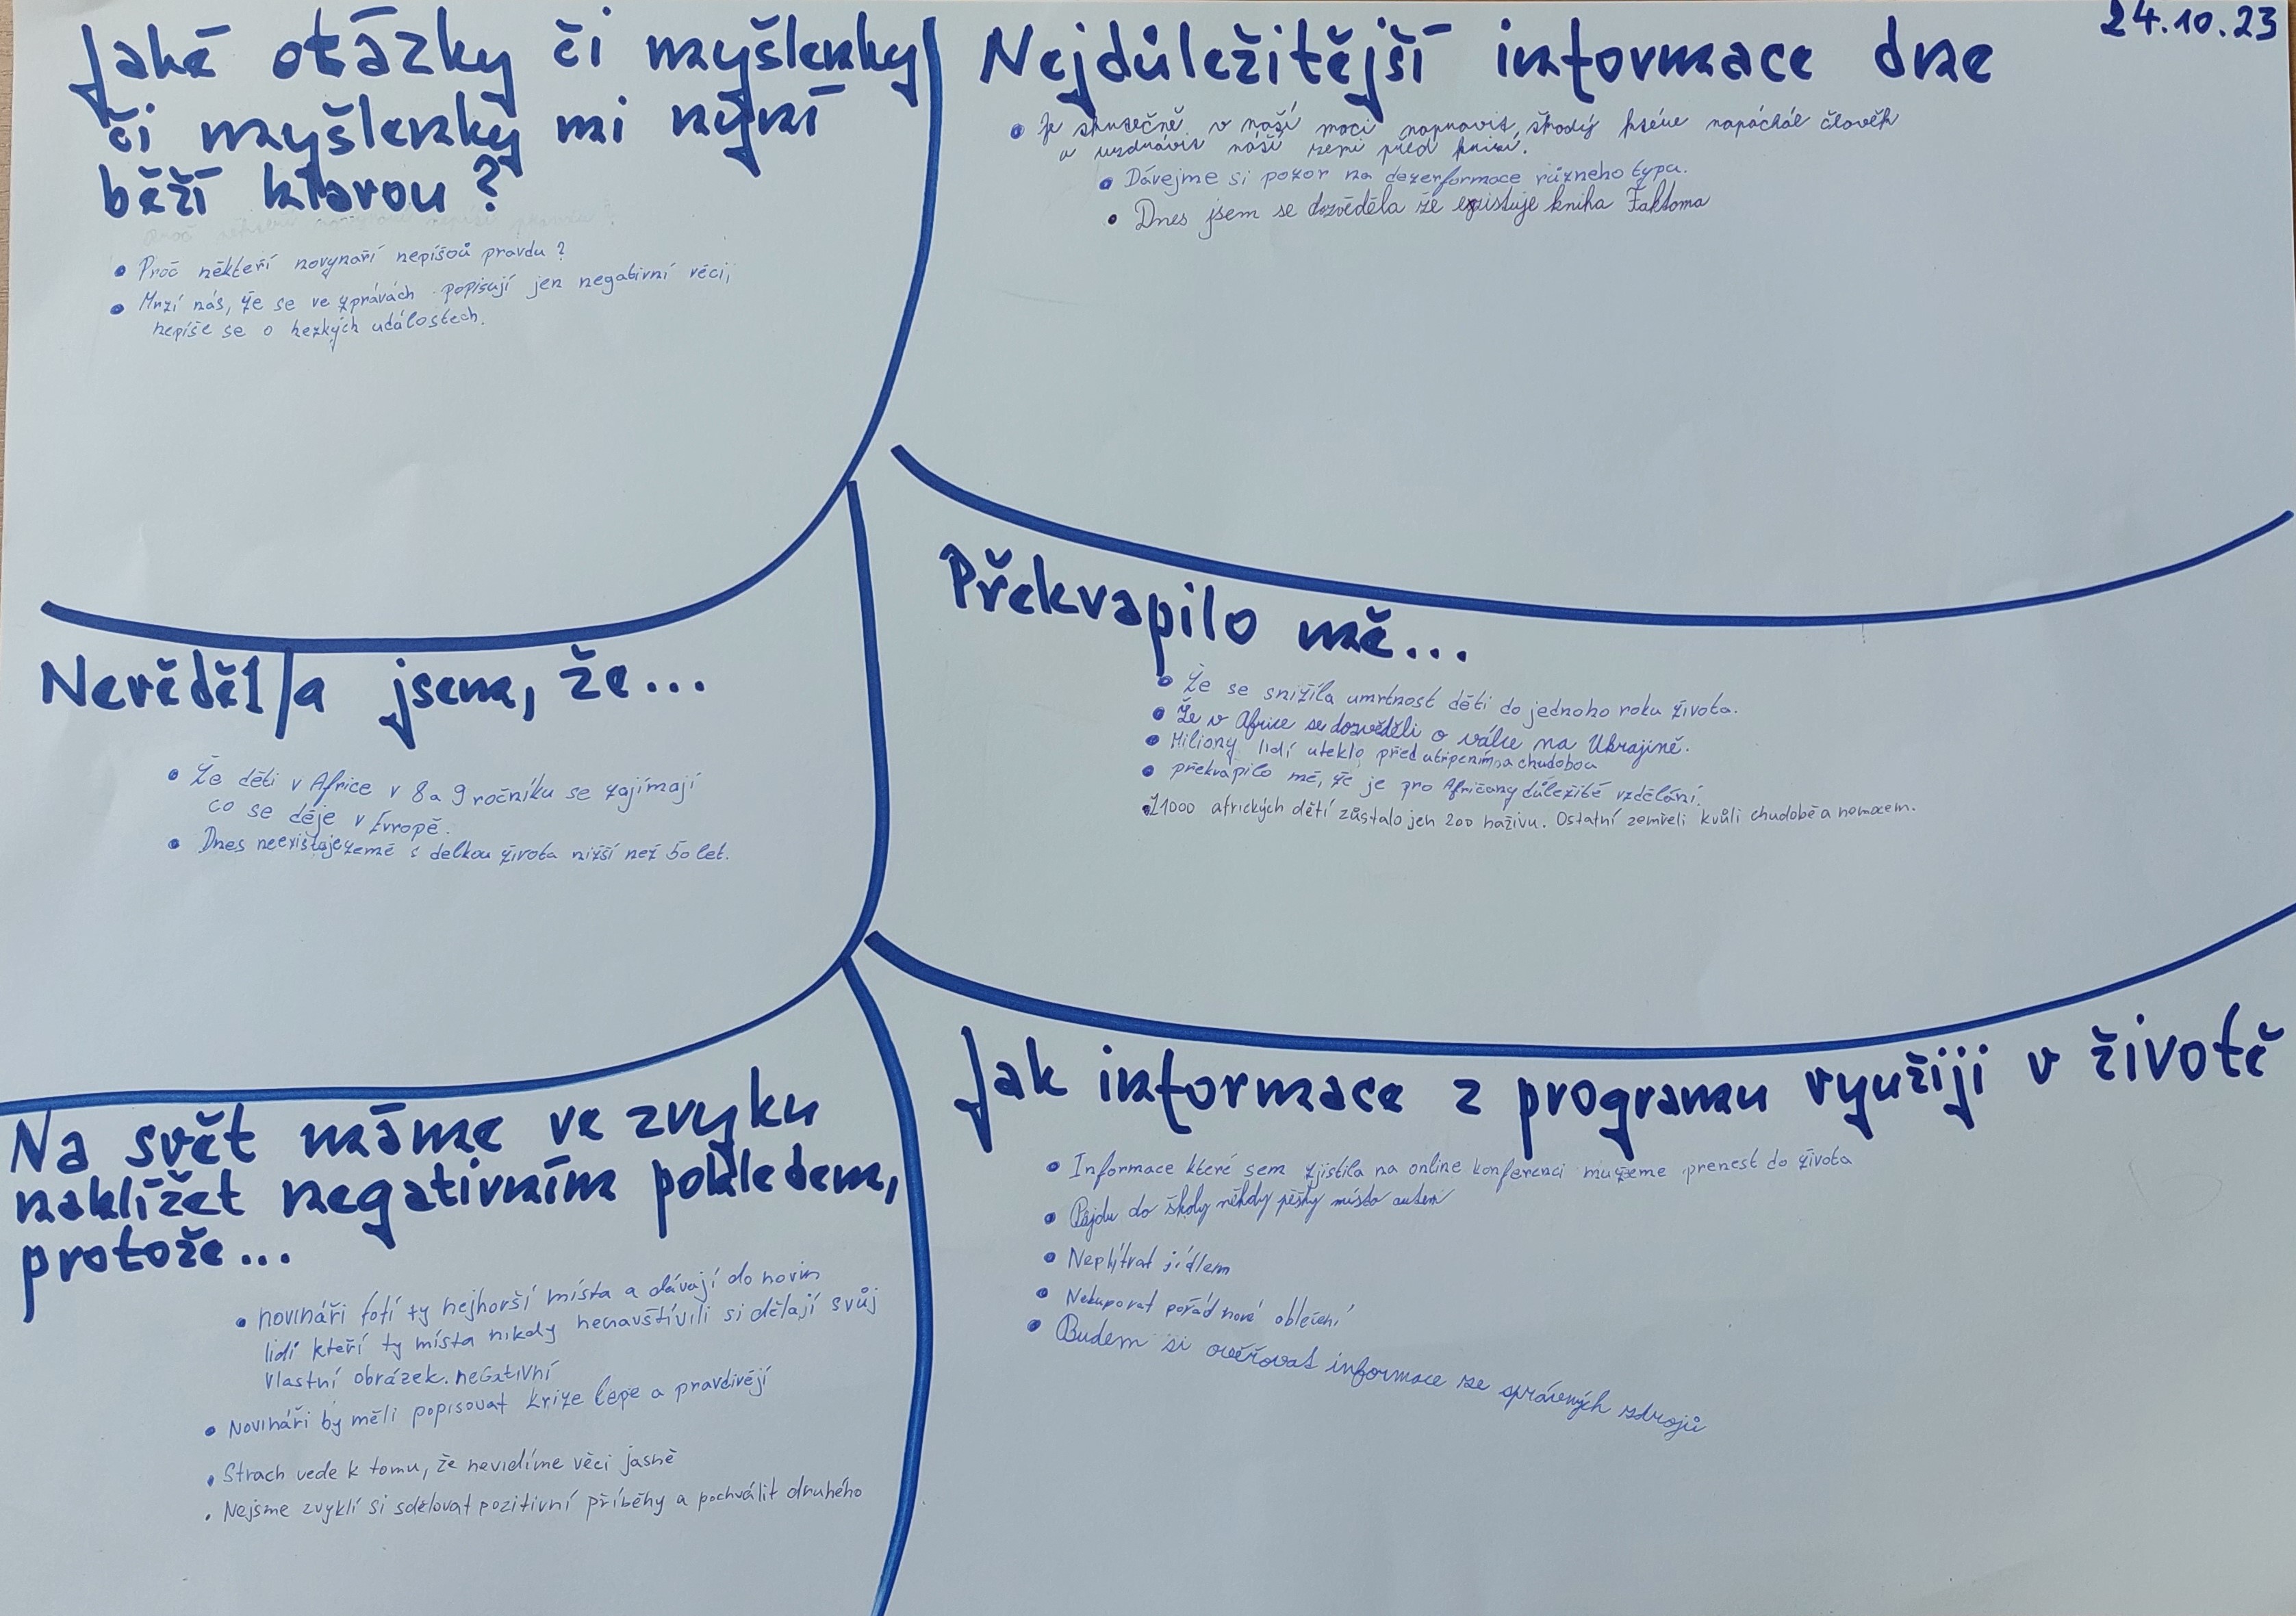 24.10.23
Jaké otázky či myšlenky
či myšlenky mi nyní
běží hlavou?
• Proč někteří novynaří nepíšoů pravdu?
• Mrzí nás, že se ve zprávách popisují jen negativní věci,
nepíše se o hezkých událostech.
Nejdůležitější informace dne
• Je skutečně v naší moci napravit škody které napáchal člověk
a uzdravit náší zemi před krizí.
• Dávejme si pozor na dezerformace různeho typu.
• Dnes jsem se dozvěděla že existuje kniha Faktoma
Nevěděl/a jsem, že...
• Že děti v Africe v 8 a 9 ročníku se zajímají
co se děje v Evropě.
• Dnes neexistuje země s delkou života nižší než 50 let.
Překvapilo mě...
• Že se snížila umrtnost děti do jednoho roku života.
• Že v Africe se dozvěděli o válce na Ukrajině.
• Miliony lidí uteklo před utrpením a chudobou
• překvapilo mě, že je pro Afričany důležité vzdělání.
• Z 1000 afrických dětí zůstalo jen 200 naživu. Ostatní zemřeli kvůli chudobě a nemocem.
Na svět máme ve zvyku
nahlížet negativním pohledem,
protože...
• novináři fotí ty nejhorší místa a dávají do novin
lidi kteří ty místa nikdy nenavštívili si dělají svůj
vlastní obrázek. neGativní
• Novináři by měli popisovat krize lepe a pravdivějí
• Strach vede k tomu, že nevidíme věci jasně
• Nejsme zvyklí si sdělovat pozitivní příběhy a pochválit druhého
Jak informace z programu využiji v životě
• Informace které sem zjistila na online konferenci mužeme prenest do života
• Půjdu do školy někdy pěšky místo autem
• Neplýtvat jídlem
• Nekupovat pořád nové oblečení
• Budem si ověřovat informace ze správných zdrojů